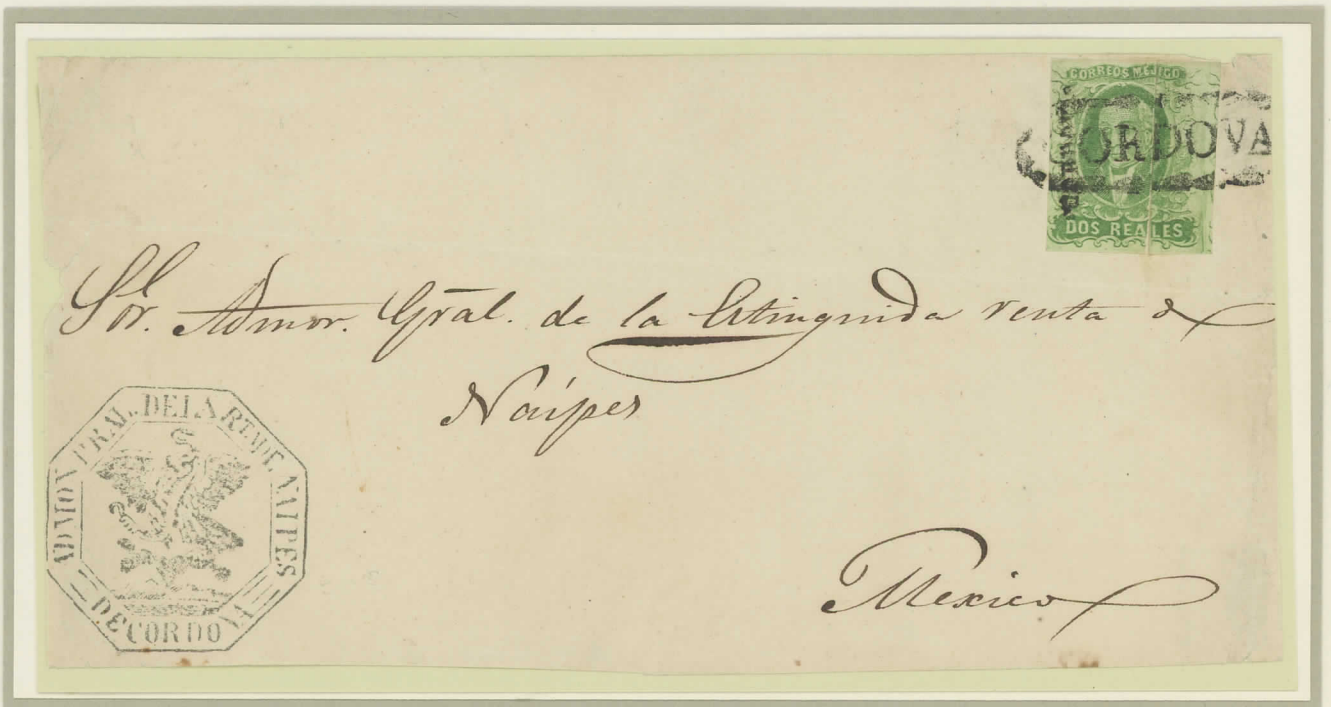 CORREOS MEJICO
CORDOVA
DOS REALES
Sor. Admor. Gral. de la Estinguida renta de
Naipes
Mexico
ADMON PRAL. DE LA RTA DE NAIPES
DE CORDOVA